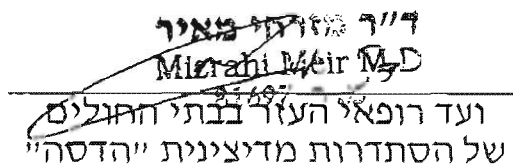 ד״ר מזרחי מאיר
Mizrahi Meir M.D
ועד רופאי העזר בבתי החולים
של הסתדרות מדיצינית ״הדסה״